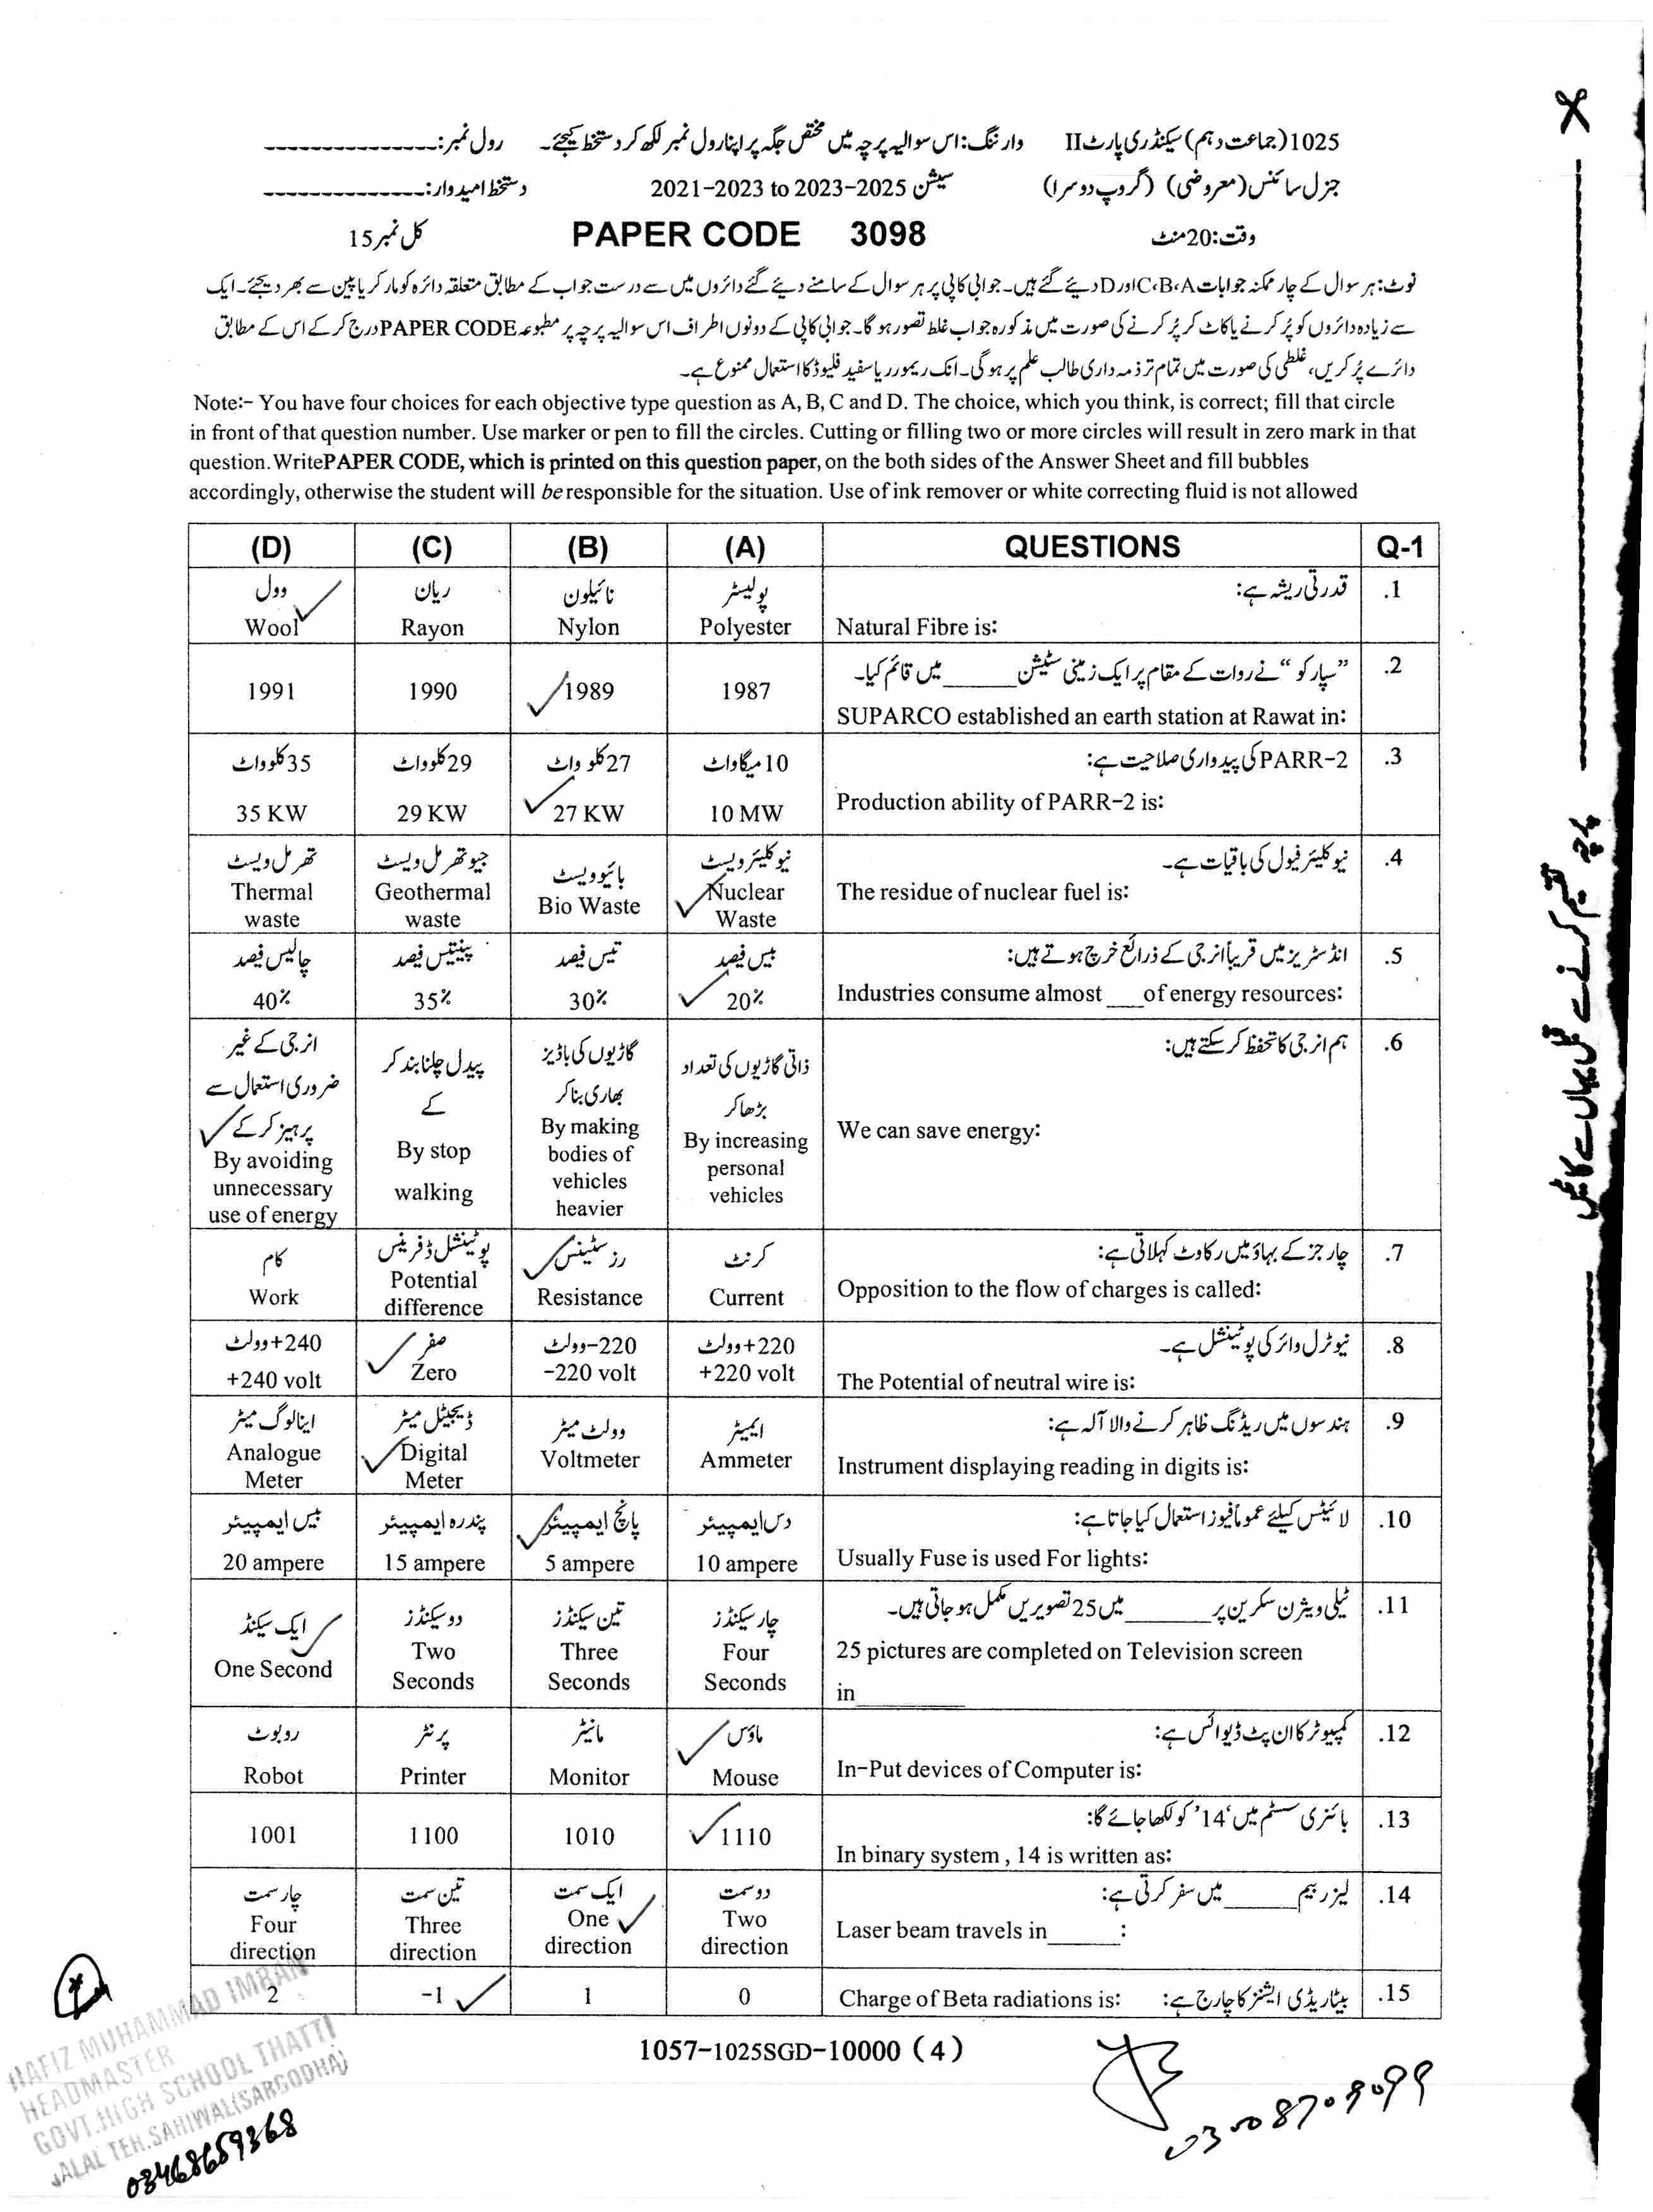 1025(جماعت دہم) سیکنڈری پارٹ II وارننگ: اس سوالیہ پرچہ میں مختص جگہ پر اپنا رول نمبر لکھ کر دستخط کیجئے۔ رول نمبر:---------------
جنرل سائنس (معروضی) (گروپ دوسرا) سیشن 2021-2023 to 2023-2025 دستخط امیدوار:--------------
وقت:20منٹ PAPER CODE 3098 کل نمبر 15
نوٹ: ہر سوال کے چار ممکنہ جوابات C،B،A اور D دیئے گئے ہیں۔ جوابی کاپی پر ہر سوال کے سامنے دیئے گئے دائروں میں سے درست جواب کے مطابق متعلقہ دائرہ کو مارکر یا پین سے بھر دیجئے۔ ایک
سے زیادہ دائروں کو پُر کرنے یا کاٹ کر پُر کرنے کی صورت میں مذکورہ جواب غلط تصور ہو گا۔ جوابی کاپی کے دونوں اطراف اس سوالیہ پرچہ پر مطبوعہ PAPER CODE درج کر کے اس کے مطابق
دائرے پُر کریں، غلطی کی صورت میں تمام تر ذمہ داری طالب علم پر ہو گی۔ انک ریمورر یا سفید فلیوڈ کا استعمال ممنوع ہے۔
Note:- You have four choices for each objective type question as A, B, C and D. The choice, which you think, is correct; fill that circle
in front of that question number. Use marker or pen to fill the circles. Cutting or filling two or more circles will result in zero mark in that
question. WritePAPER CODE, which is printed on this question paper, on the both sides of the Answer Sheet and fill bubbles
accordingly, otherwise the student will be responsible for the situation. Use of ink remover or white correcting fluid is not allowed
(D) (C) (B) (A) QUESTIONS Q-1
وول ریان نائیلون پولیسٹر قدرتی ریشہ ہے: .1
Wool Rayon Nylon Polyester Natural Fibre is:
”سپارکو“ نے روات کے مقام پر ایک زمینی سٹیشن ______ میں قائم کیا۔ .2
1991 1990 1989 1987
SUPARCO established an earth station at Rawat in:
35کلوواٹ 29کلوواٹ 27کلو واٹ 10 میگاواٹ PARR-2 کی پیداواری صلاحیت ہے: .3
35 KW 29 KW 27 KW 10 MW Production ability of PARR-2 is:
تھرمل ویسٹ جیوتھرمل ویسٹ بائیوویسٹ نیوکلیئر ویسٹ نیوکلیئر فیول کی باقیات ہے۔ .4
Thermal waste Geothermal waste Bio Waste Nuclear Waste The residue of nuclear fuel is:
چالیس فیصد پینتیس فیصد تیس فیصد بیس فیصد انڈسٹریز میں قریباً انرجی کے ذرائع خرچ ہوتے ہیں: .5
40% 35% 30% 20% Industries consume almost ___of energy resources:
انرجی کے غیر ضروری استعمال سے پرہیز کر کے پیدل چلنا بند کر کے گاڑیوں کی باڈیز بھاری بنا کر ذاتی گاڑیوں کی تعداد بڑھا کر ہم انرجی کا تحفظ کر سکتے ہیں: .6
By avoiding unnecessary use of energy By stop walking By making bodies of vehicles heavier By increasing personal vehicles We can save energy:
کام پوٹینشل ڈفرینس رزسٹینس کرنٹ چارجز کے بہاؤ میں رکاوٹ کہلاتی ہے: .7
Work Potential difference Resistance Current Opposition to the flow of charges is called:
+240وولٹ صفر -220وولٹ +220وولٹ نیوٹرل وائر کی پوٹینشل ہے۔ .8
+240 volt Zero -220 volt +220 volt The Potential of neutral wire is:
اینالوگ میٹر ڈیجیٹل میٹر وولٹ میٹر ایمیٹر ہندسوں میں ریڈنگ ظاہر کرنے والا آلہ ہے: .9
Analogue Meter Digital Meter Voltmeter Ammeter Instrument displaying reading in digits is:
بیس ایمپیئر پندرہ ایمپیئر پانچ ایمپیئر دس ایمپیئر لائیٹس کیلئے عموماً فیوز استعمال کیا جاتا ہے: .10
20 ampere 15 ampere 5 ampere 10 ampere Usually Fuse is used For lights:
ایک سیکنڈ دو سیکنڈز تین سیکنڈز چار سیکنڈز ٹیلی ویژن سکرین پر _______ میں 25 تصویریں مکمل ہو جاتی ہیں۔ .11
One Second Two Seconds Three Seconds Four Seconds 25 pictures are completed on Television screen
in_________
روبوٹ پرنٹر مانیٹر ماؤس کمپیوٹر کا ان پٹ ڈیوائس ہے: .12
Robot Printer Monitor Mouse In-Put devices of Computer is:
بائنری سسٹم میں ‘14’ کو لکھا جائے گا: .13
1001 1100 1010 1110
In binary system , 14 is written as:
چار سمت تین سمت ایک سمت دو سمت لیزر بیم ______ میں سفر کرتی ہے: .14
Four direction Three direction One direction Two direction Laser beam travels in______:
2 -1 1 0 Charge of Beta radiations is: بیٹا ریڈی ایشنز کا چارج ہے: .15
1057-1025SGD-10000 (4)
HAFIZ MUHAMMAD IMRAN
HEADMASTER
GOVT.HIGH SCHOOL THATTI
JALAL TEH.SAHIWAL(SARGODHA)
03468659368
03008709099
پرچہ تقسیم کرنے سے قبل یہاں سے کاٹیں